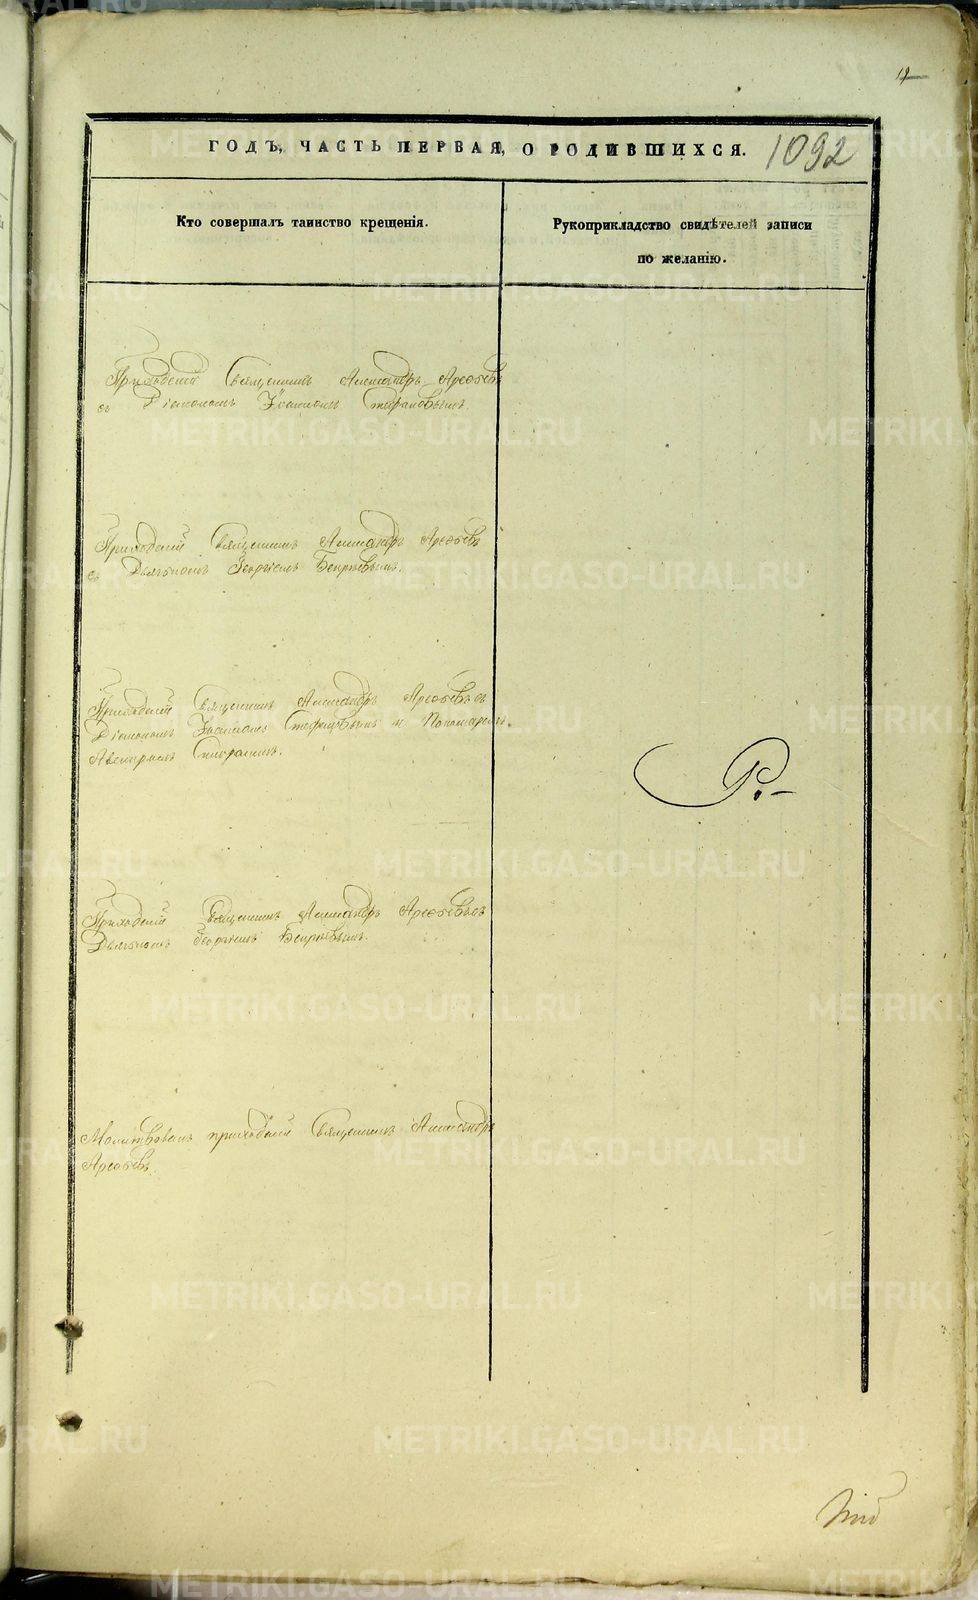 ГОДЪ, ЧАСТЬ ПЕРВАЯ, О РОДИВШИХСЯ. 1092
Кто совершалъ таинство крещенія.
Рукоприкладство свидѣтелей записи
по желанію.
Приходскій Священникъ Александръ Арефьевъ
съ Діакономъ Іоанномъ Стефановымъ.
Приходскій Священникъ Александръ Арефьевъ
съ Дьячкомъ Георгіемъ
Приходскій Священникъ Александръ Арефьевъ съ
Діакономъ Іоанномъ Стефановымъ и Пономаремъ
Приходскій Священникъ Александръ Арефьевъ съ
Дьячкомъ Георгіемъ
Молитвовалъ приходскій Священникъ Александръ
Арефьевъ.
Р.
METRIKI.GASO-URAL.RU